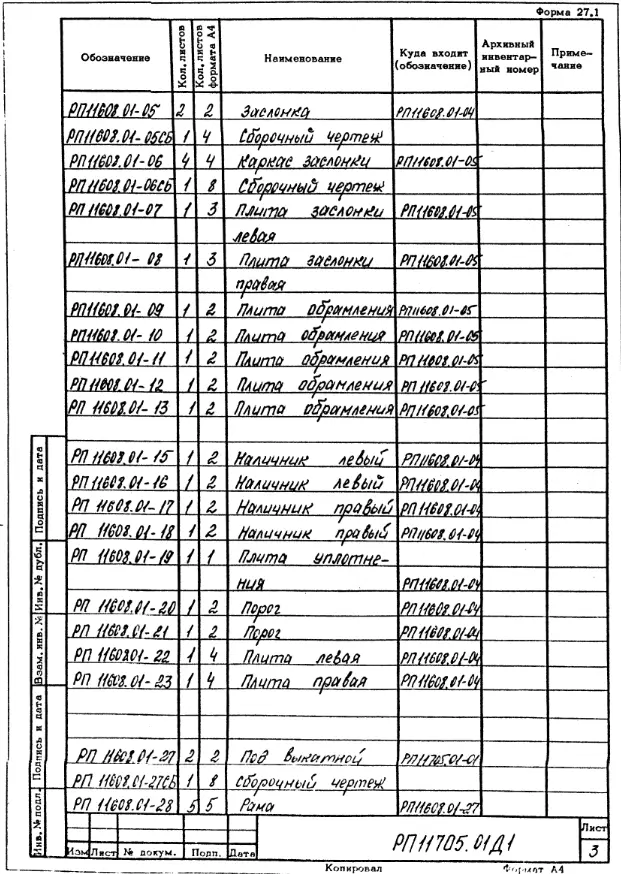 Форма 27.1
Обозначение Кол. листов Кол. листов формата А4 Наименование Куда входит (обозначение) Архивный инвентарный номер Примечание
РП11608.01-05 2 2 Заслонка РП11608.01-04
РП11608.01-05СБ 1 4 Сборочный чертеж
РП11608.01-06 4 4 Каркас заслонки РП11608.01-05
РП11608.01-06СБ 1 8 Сборочный чертеж
РП 11608.01-07 1 3 Плита заслонки РП11608.01-05
левая
РП11608.01-08 1 3 Плита заслонки РП11608.01-05
правая
РП11608.01-09 1 2 Плита обрамления РП11608.01-05
РП11608.01-10 1 2 Плита обрамления РП11608.01-05
РП11608.01-11 1 2 Плита обрамления РП 11608.01-05
РП 11608.01-12 1 2 Плита обрамления РП11608.01-05
РП 11608.01-13 1 2 Плита обрамления РП11608.01-05
РП 11608.01-15 1 2 Наличник левый РП11608.01-04
РП 11608.01-16 1 2 Наличник левый РП11608.01-04
РП 11608.01-17 1 2 Наличник правый РП11608.01-04
РП 11608.01-18 1 2 Наличник правый РП11608.01-04
РП 11608.01-19 1 1 Плита уплотне-
ния РП11608.01-04
РП 11608.01-20 1 2 Порог РП11608.01-04
РП 11608.01-21 1 2 Порог РП11608.01-04
РП 1160801-22 1 4 Плита левая РП11608.01-04
РП 11608.01-23 1 4 Плита правая РП11608.01-04
РП 11608.01-27 2 2 Под выкатной РП11705.01-01
РП 11608.01-27СБ 1 8 Сборочный чертеж
РП 11608.01-28 5 5 Рама РП11608.01-27
Инв. № подл. Подпись и дата Взам. инв. № Инв. № дубл. Подпись и дата
Изм Лист № докум. Подп. Дата
РП11705.01Д1
Лист
3
Копировал Формат А4